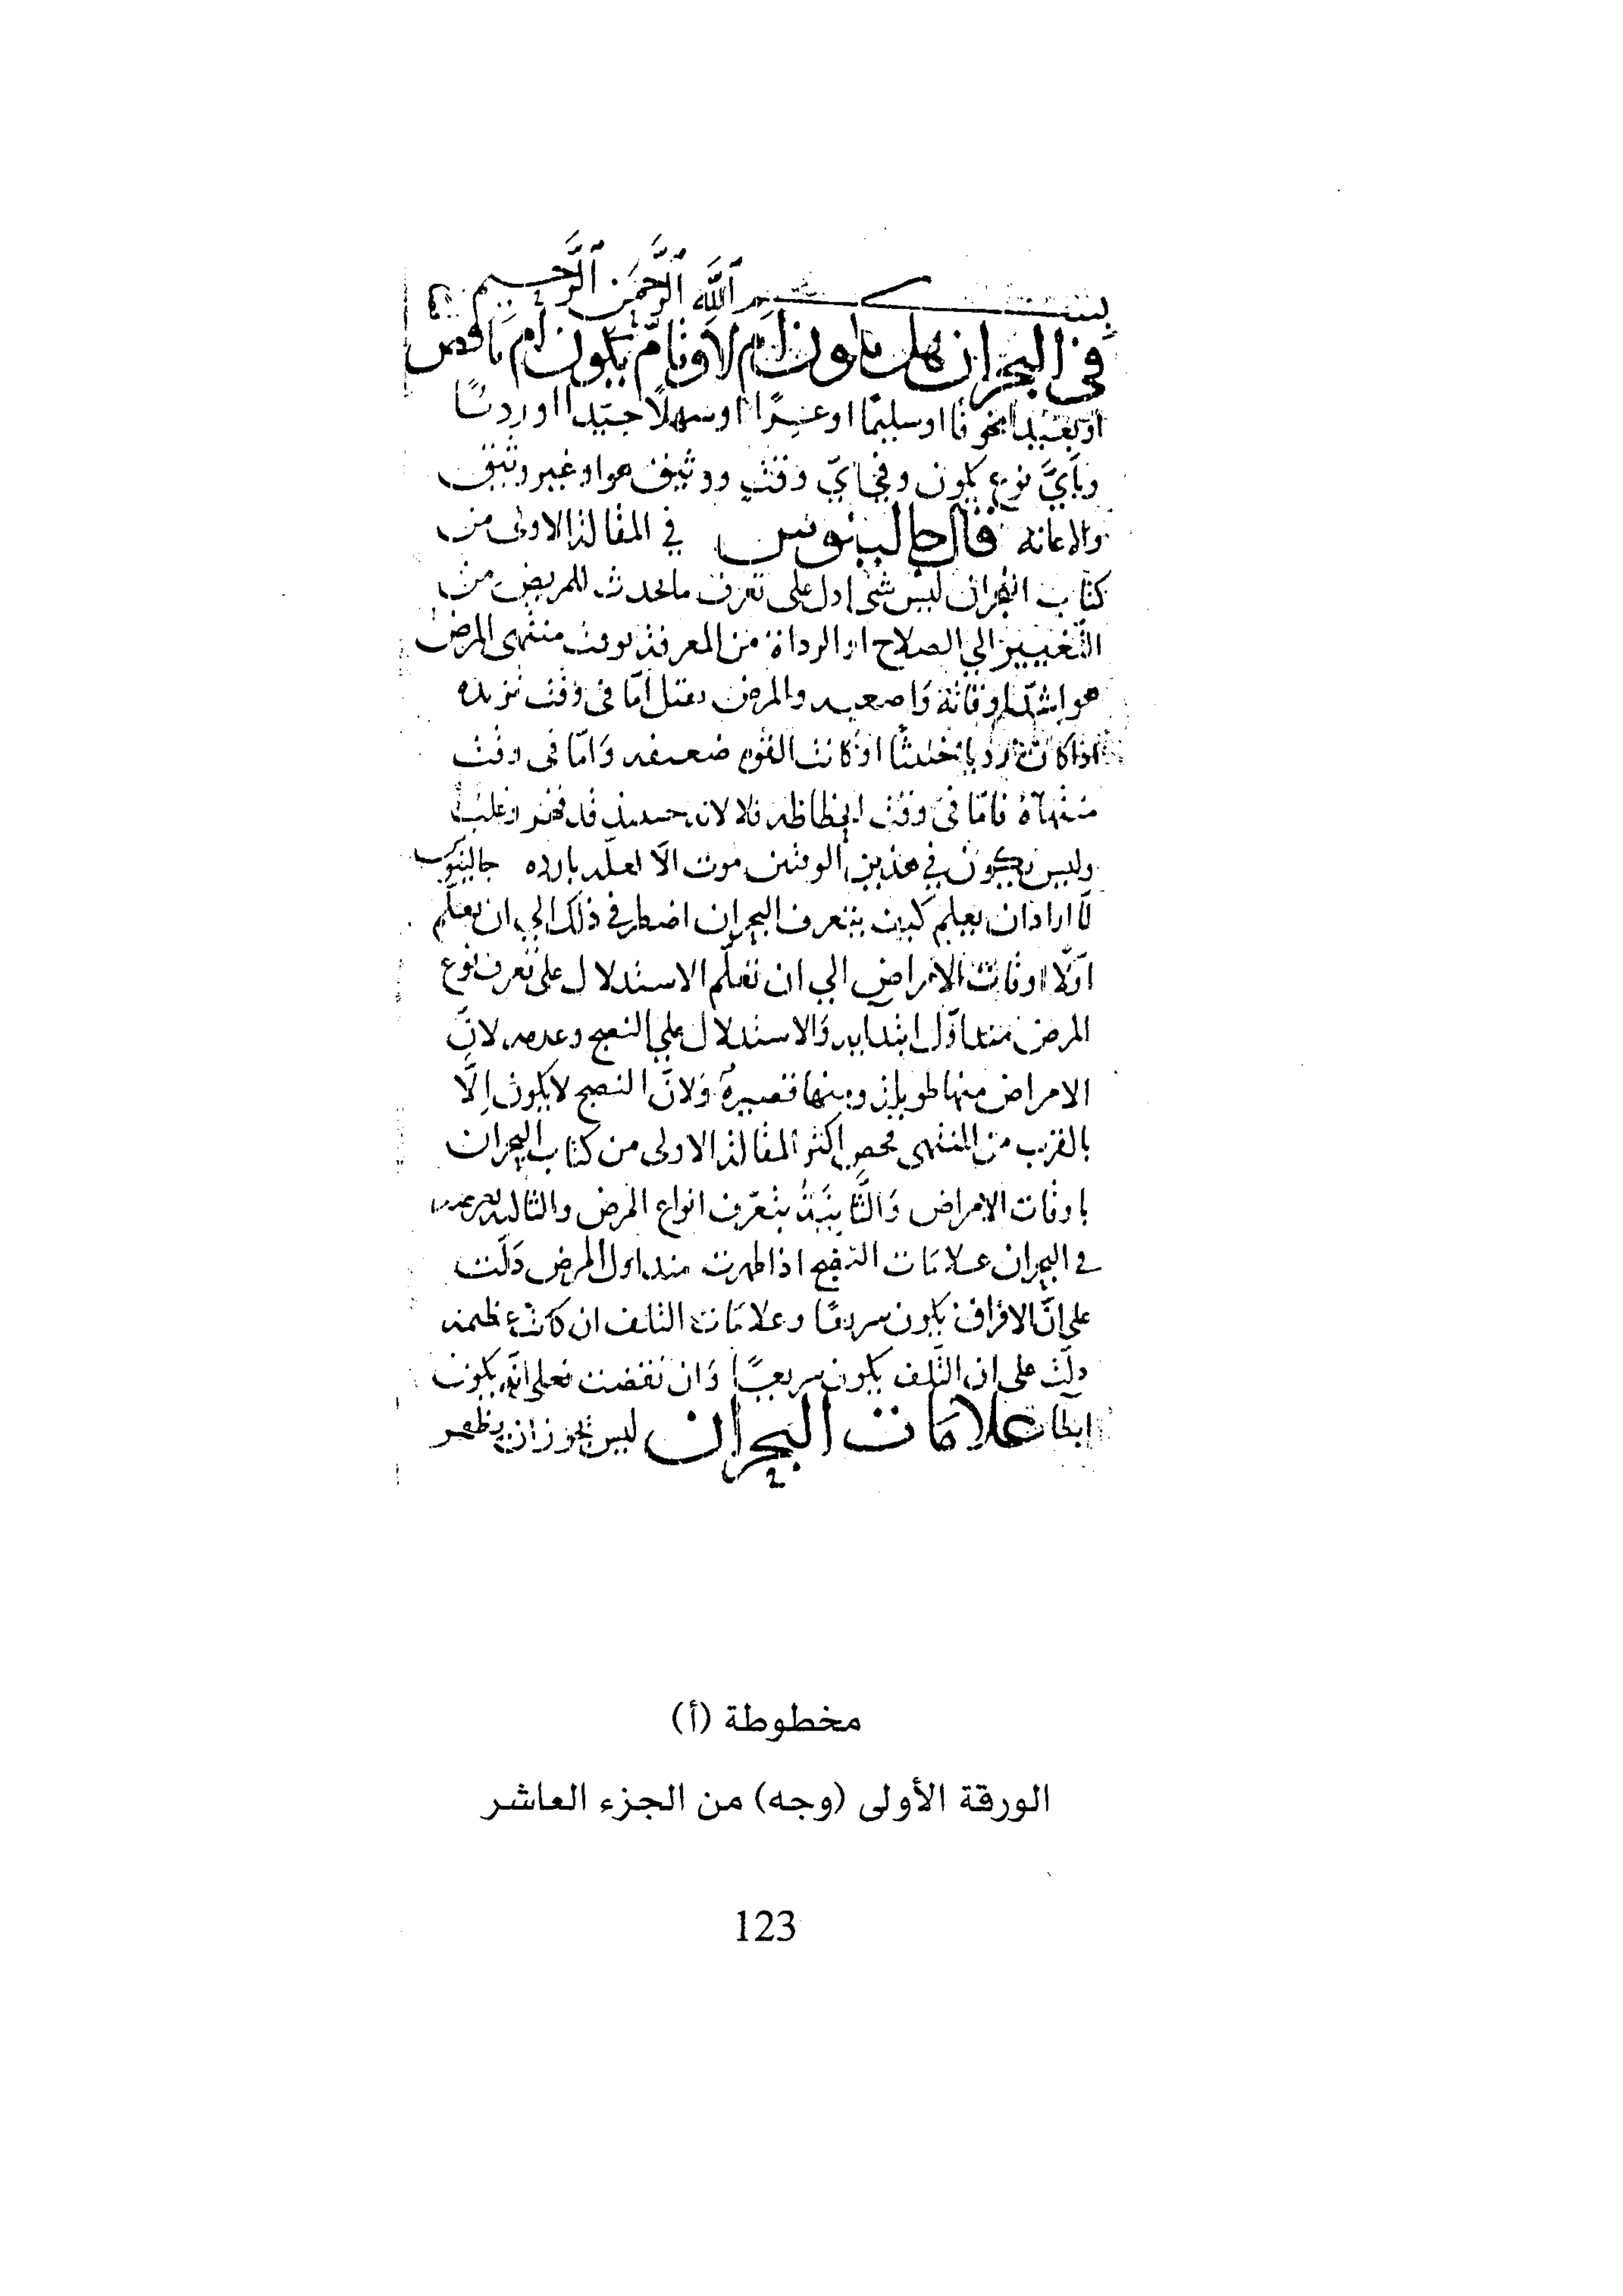 بسم الله الرحمن الرحيم
في البحران هل يكون ام لا وتامّ يكون ام ناقص
او بعيدا مخوفا او سليما او عسرًا او سهلًا جيّدا او رديًا
وبأيّ نوع يكون وفي ايّ وقت ووثيق هو او غير وثيق
قال جالينوس في المقالة الاولى من
كتاب البحران ليس شي ادل على تعرف ما يحدث للمريض من
التغيير الي الصلاح او الرداة من المعرفة بوقت منتهى المرض
هو اشدّ اوقاته واصعبه والمرض يقتل امّا في وقت تزيده
اذا كان رديا خبيثا او كانت القوه ضعيفه وامّا في وقت
منتهاه فامّا في وقت انحطاطه فلا لانه حينئذ قد قهر وغلب
وليس يكون في هذين الوقتين موت الّا لعلّه بارده جالينوس
لمّا اراد ان يعلم كيف يتعرف البحران اضطر في ذلك الي ان يعلّم
اوّلا اوقات الامراض الي ان تعلّم الاستدلال على تعرف نوع
المرض منذ اوّل ابتدايه والاستدلال علي النضج وعدمه لانّ
الامراض منها طويلة ومنها قصيرة ولانّ النضج لا يكون إلّا
بالقرب من المنتهى اكثر المقالة الاولى من كتاب البحران
باوقات الامراض والثّانية بتعرّف انواع المرض والثالثه
في البحران علامات النضج اذا ظهرت منذ اول المرض دلّت
على انّ الافراق يكون سريعًا وعلامات التلف ان كانت عظيمة
دلّت على ان التّلف يكون سريعًا وان نقصت فعلى انّه يكون
ابطا علامات البحران ليس يجوز ان يظهر
مخطوطة (أ)
الورقة الأولى (وجه) من الجزء العاشر
123